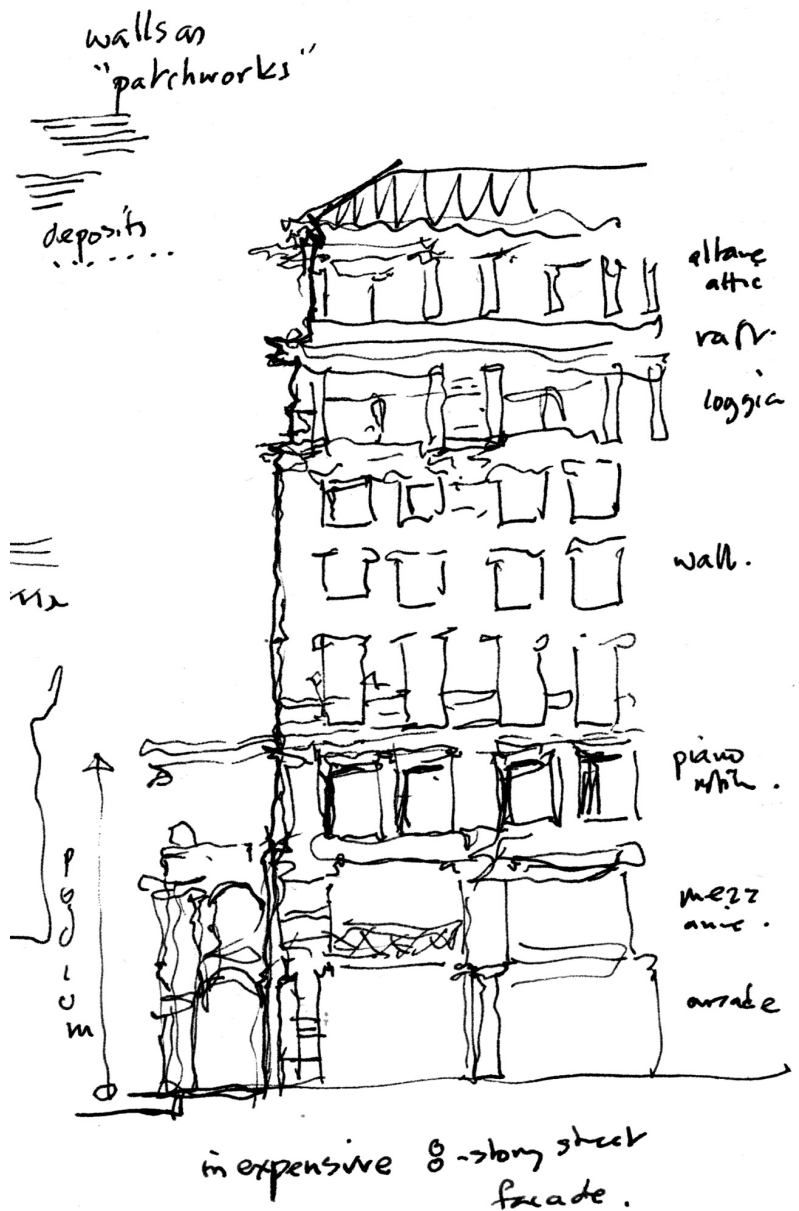 walls as
"patchworks"
deposits
altane
attic
loggia
wall.
piano
mezz
anine.
arcade
podium
inexpensive 8-story street
facade.